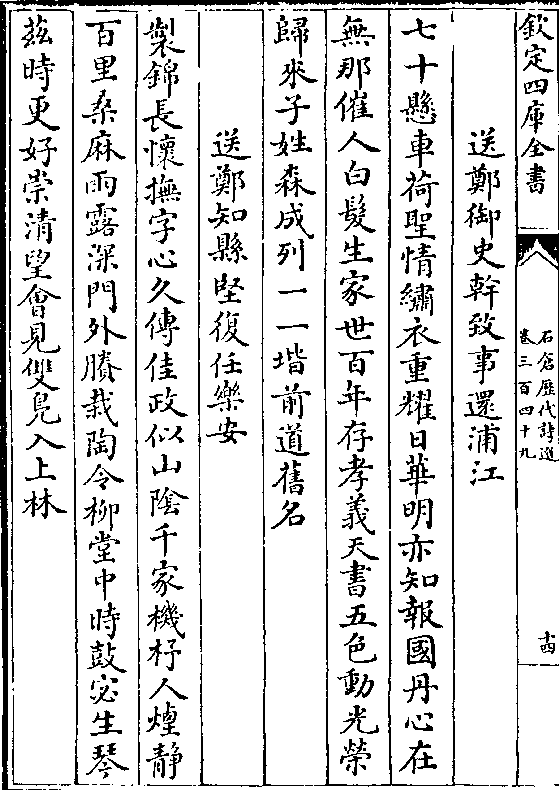 欽定四庫全書
石倉歷代詩選
卷三百四十九
十四
送鄭御史幹致事還浦江
七十懸車荷聖情繡衣重耀日華明亦知報國丹心在
無那催人白髮生家世百年存孝義天書五色動光榮
歸來子姓森成列一一堦前道舊名
送鄭知縣堅復任樂安
製錦長懷撫字心久傳佳政似山陰千家機杼人煙靜
百里桑麻雨露深門外賸栽陶令柳堂中時鼓宓生琴
茲時更好崇清望會見雙鳧入上林